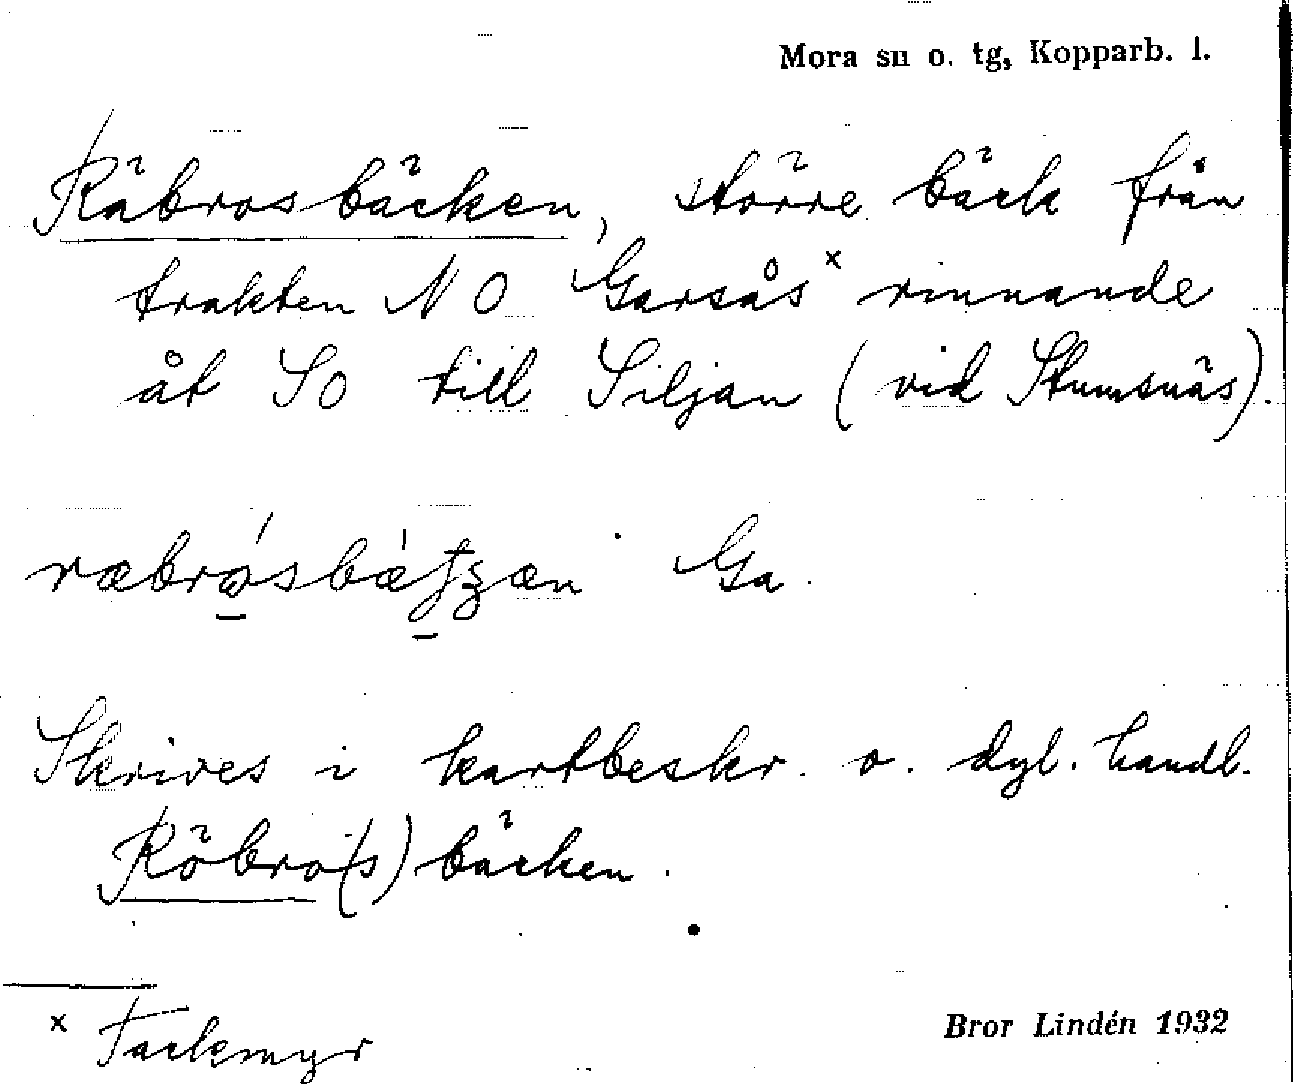 Mora sn o. tg, Kopparb. l.
Räbrosbäcken, större bäck från
trakten NO Garsås x rinnande
åt SO till Siljan (vid Stumsnäs).
Ga.
Skrives i kartbeskr. o. dyl. handl.
Röbro(s)bäcken.
x Tackmyr
Bror Lindén 1932